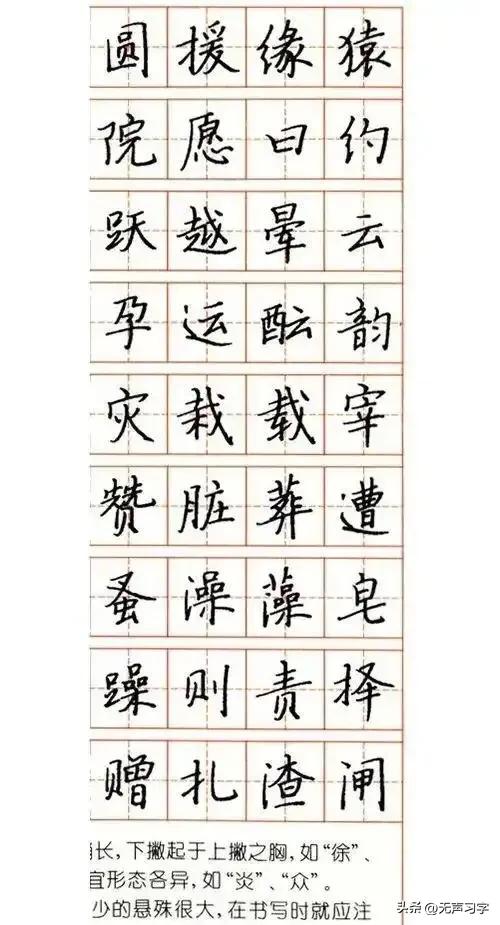 圆援缘猿
院愿曰约
跃越晕云
孕运酝韵
灾栽载宰
赞脏葬遭
蚤澡藻皂
躁则责择
赠扎渣闸
长，下撇起于上撇之胸，如“徐”、
宜形态各异，如“炎”、“众”。
少的悬殊很大，在书写时就应注
头条@无声习字